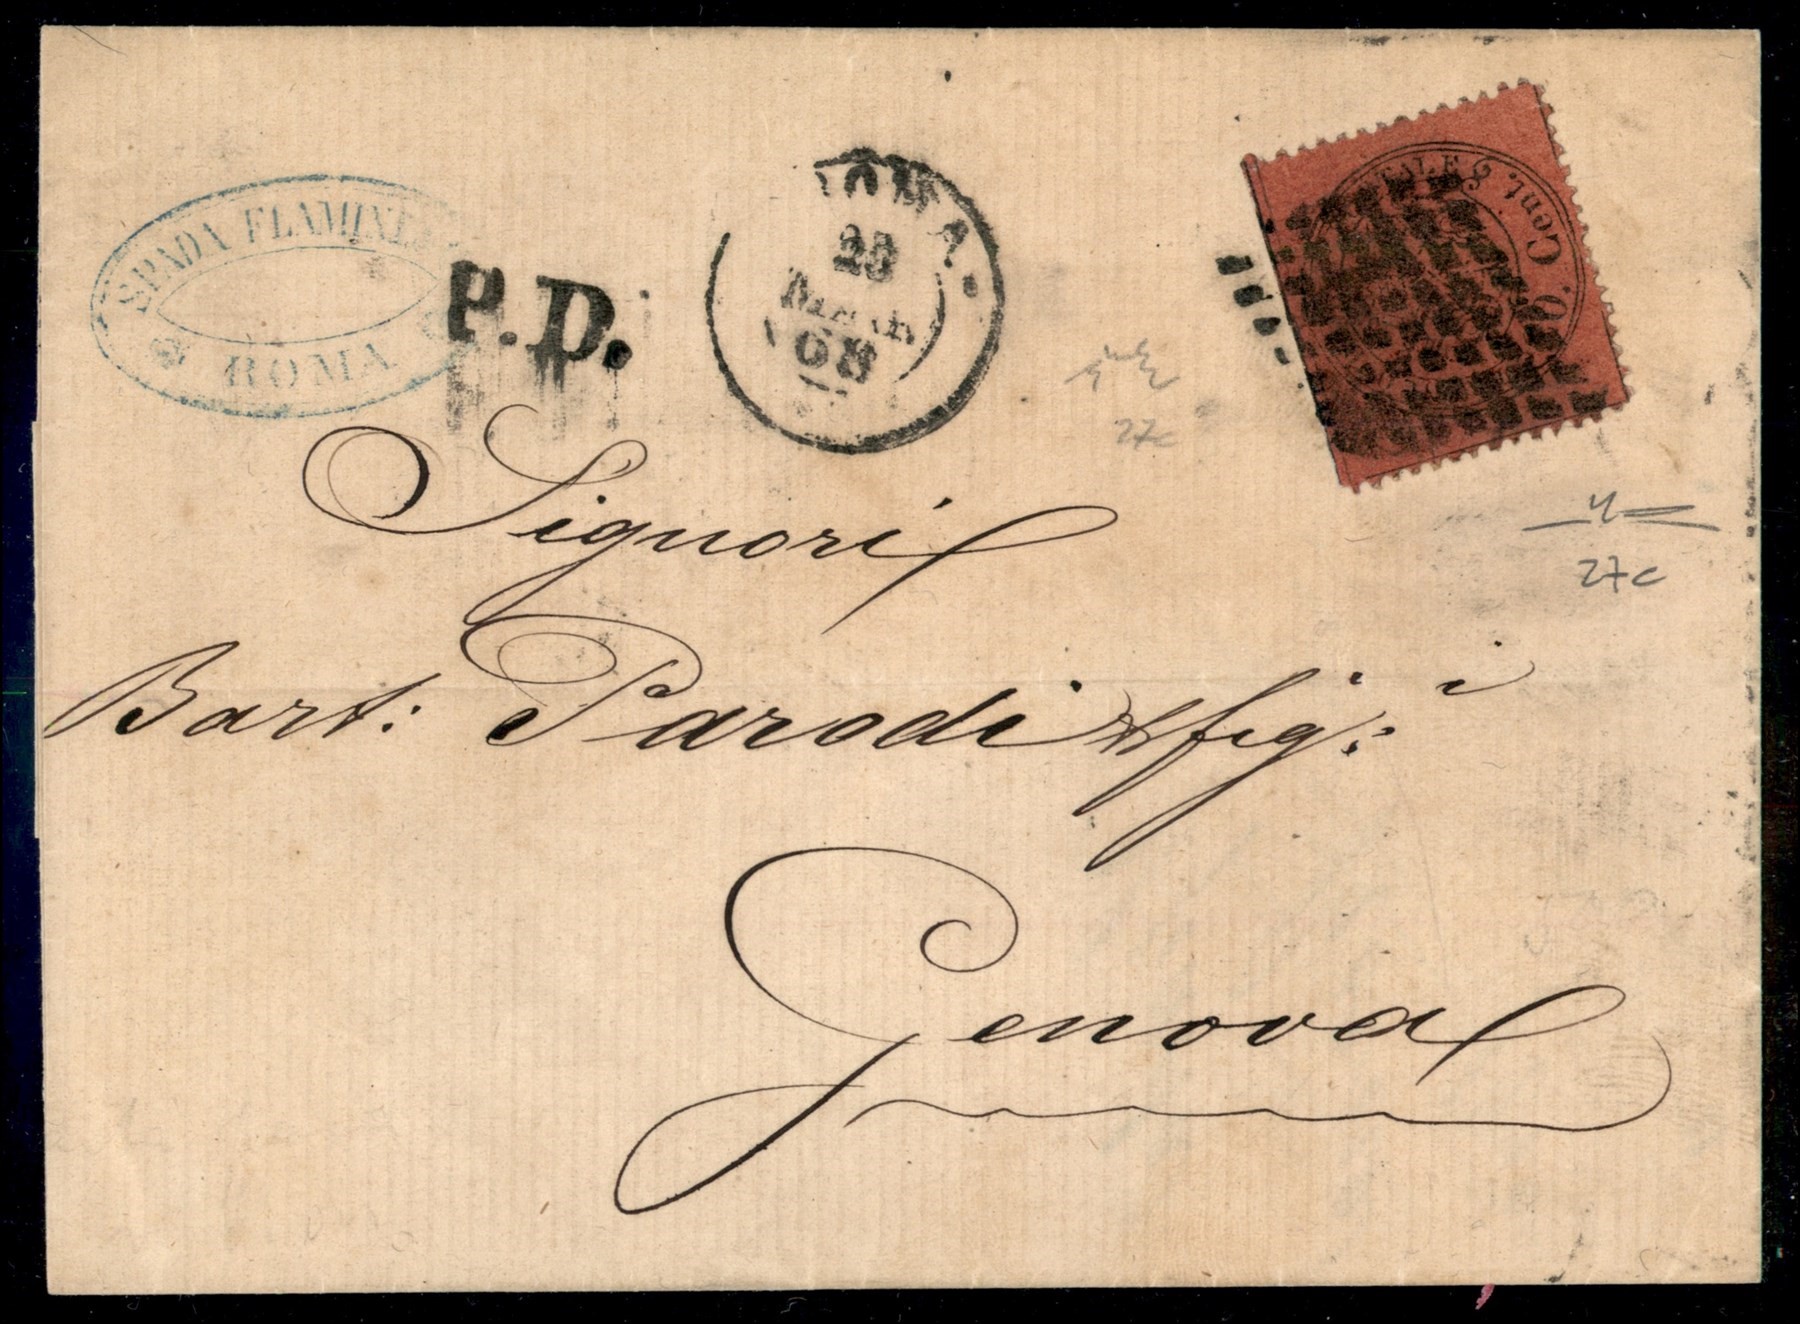 SPADA FLAMINI
ROMA
P.D.
ROMA
23
MAR
68
TALE
Cent.
27c
27c
Signori
Bart: Parodi & fig:i
Genova